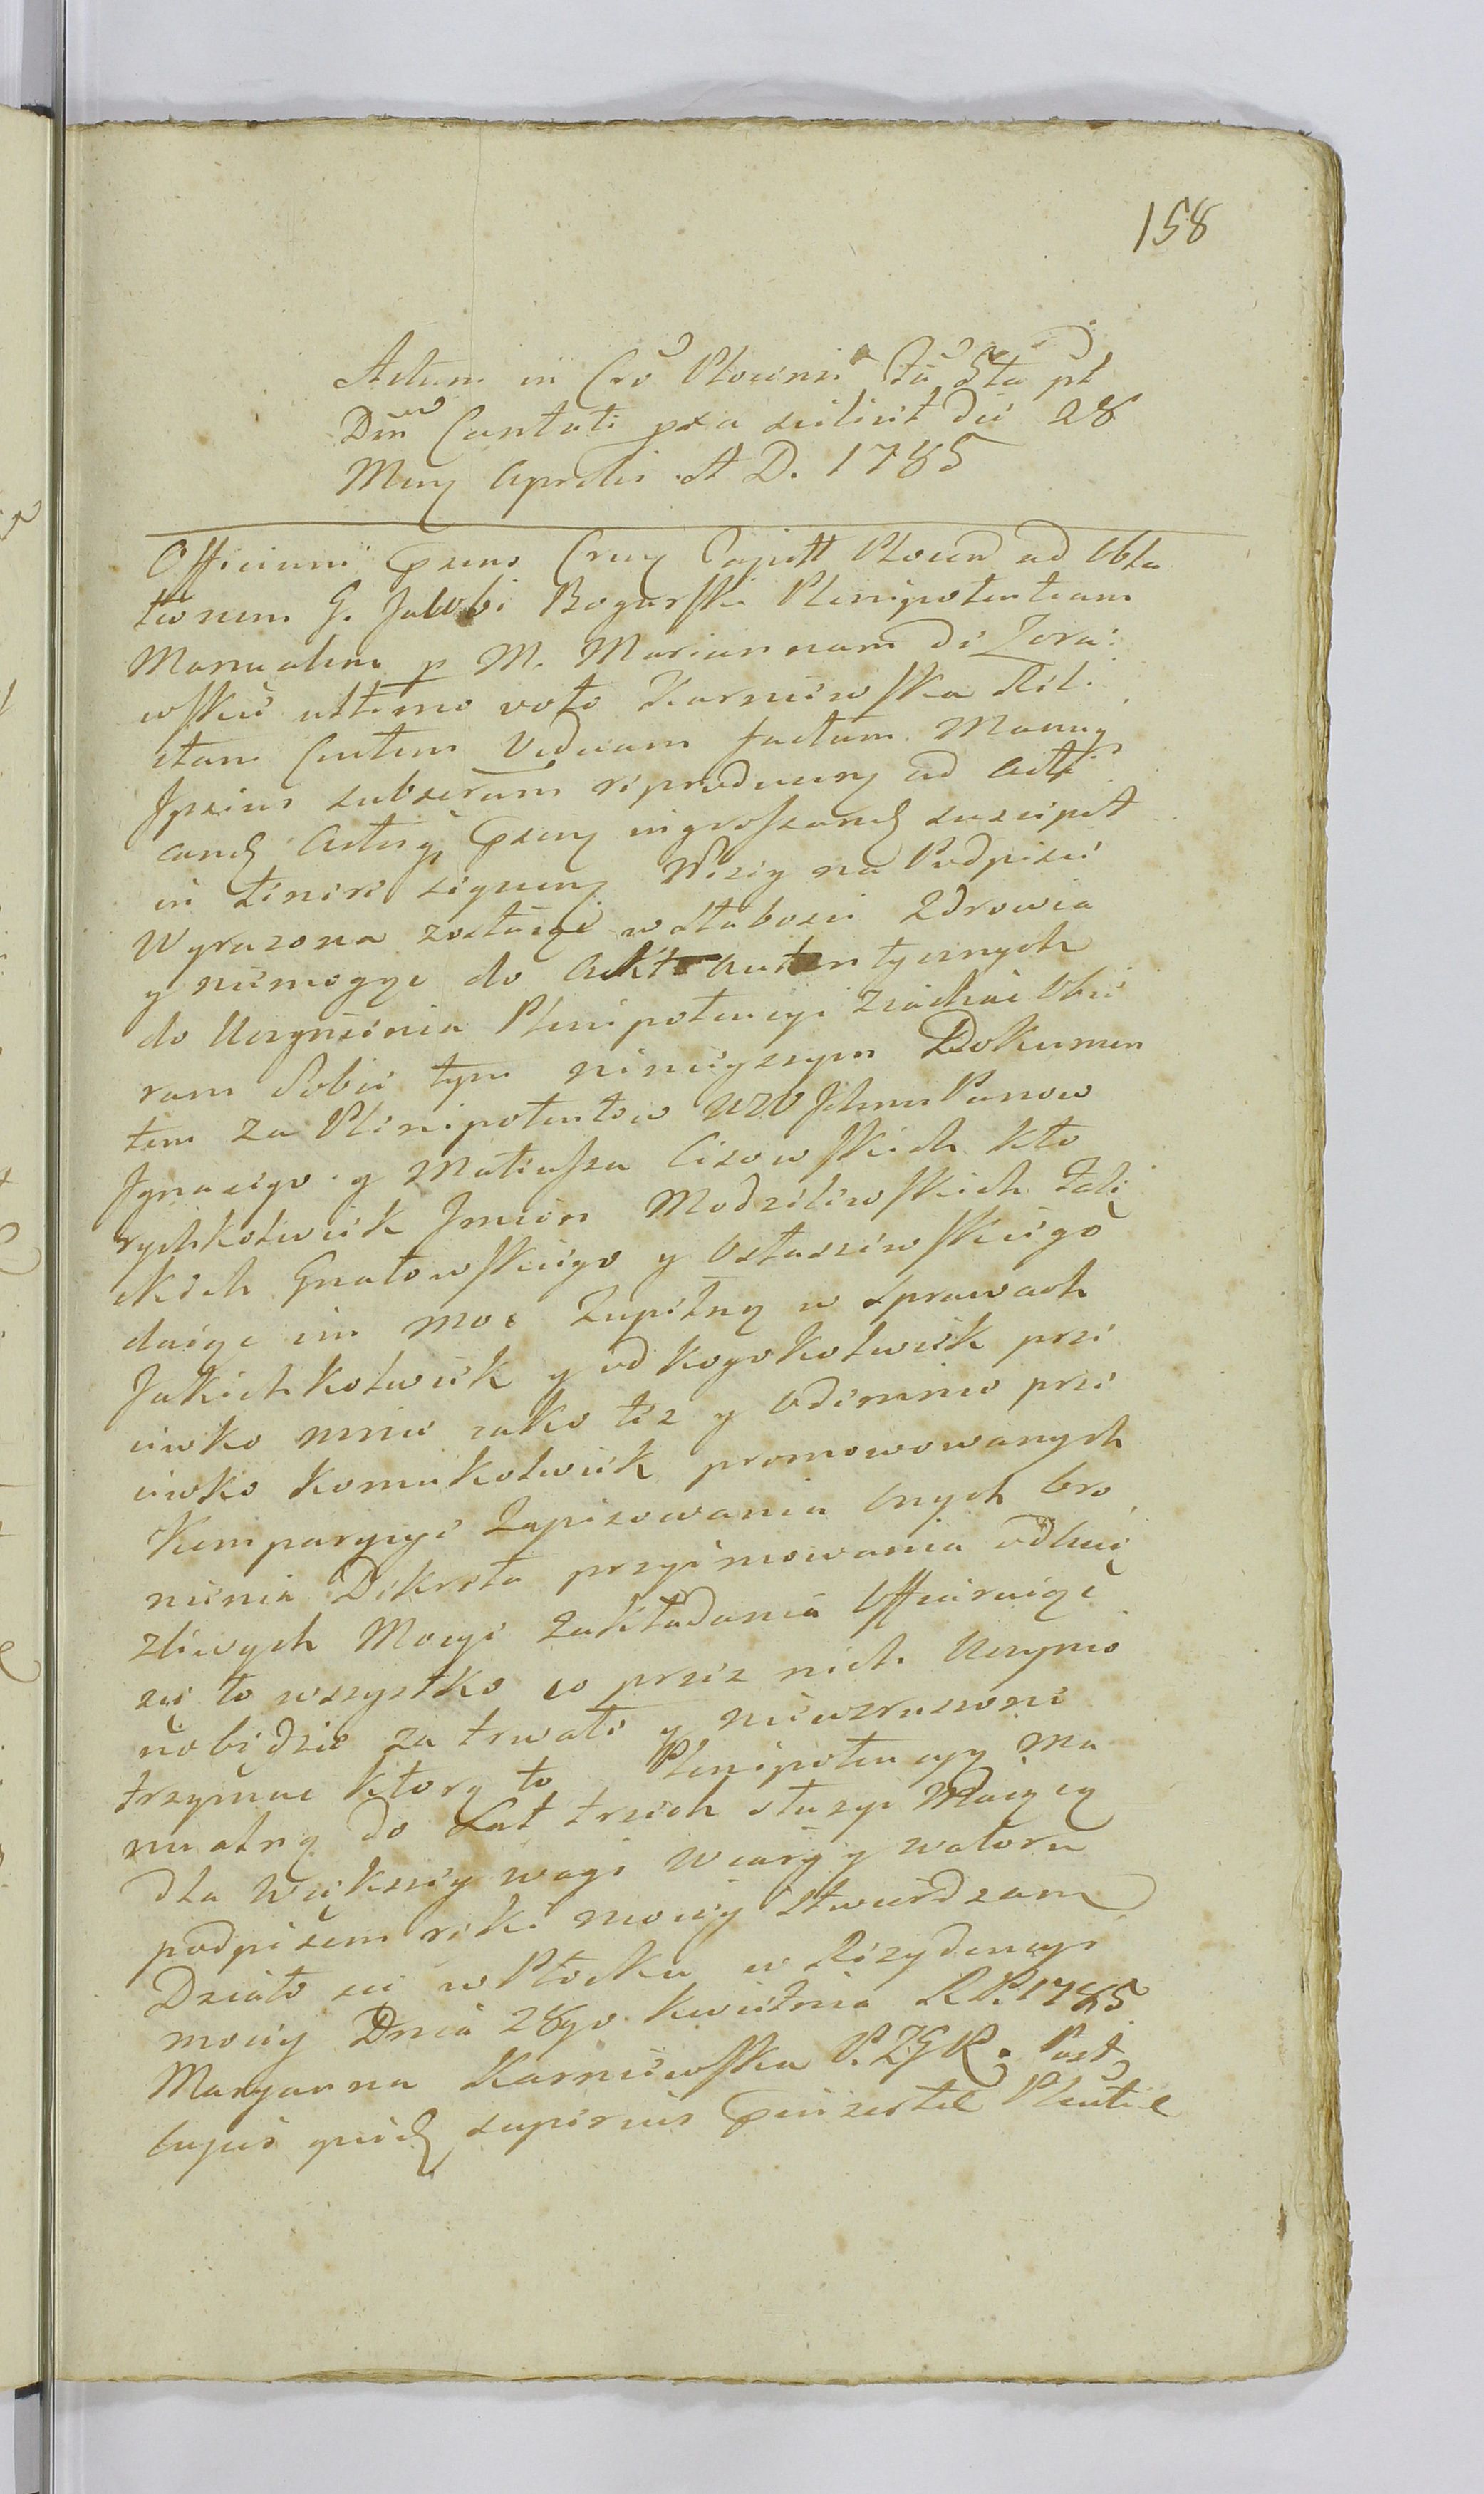 158
Actum in Cro Plocensi Fa 5ta pt
Dm Cantate pxa scilicet die 28
Mens Aprilis A D. 1785
Officium Csens Crus Capitt Plocen ad Obla
tionem G. Jakobi Bogurski Plenipotentiam
Manualem p M. Mariannam de Zera:
wskie ultimo voto Karniewska Reli
ctam Viduam factam. Manuq
Ipsius subscram reproducens ad acti
cand Actusq Csens ingrossand suscipit
in tenore sequens. Niżey na Podpisie
Wyrazona zostaięc w słabosci Zdrowia
y niemogąc do Akt Autentycznych
do Uczynienia Plenipotencyi Ziachac Obie
ram sobie tym ninieyszym Dokumen
tem za Plenipotentow WW Jchmc Panow
Ignacego y Mateusza Cisowskich Kto
rychkolwiek Imion Modzelewskich Zale
skich Gnatowskiego y Ostaszewskiego
daiąc im moc Zupełną w sprawach
Jakichkolwiek y od kogokolwiek prze
ciwko mnie iako też y Odemnie prze
ciwko komukolwiek promowowanych
Komparycyi Zapisowania Onych bro
nienia Dekreta przyimowania odleie
zliwych Mocyi Zakładania Offiaruiąc
się to wszystko co przez nich Uczynio
no będzie za trwałe y niewzruszone
trzymac ktorą to Plenipotencyą ma
nualną do Lat trzech służyc Maiącą
dla Większey wagi Wiary y waloru
podpisem ręki moiey stwierdzam
Działo się w Płocku w Rezydencyi
moiey Dnia 28go Kwietnia R.P. 1785
Maryanna Karniewska P.Z.G.R. Post
cujus quid superius insertae Plentiae